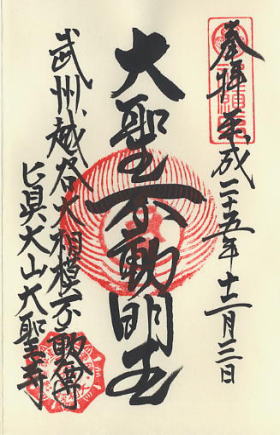 奉拝 平成二十五年 十二月三日
大聖不動明王
武州越谷大相模不動尊
眞大山大聖寺